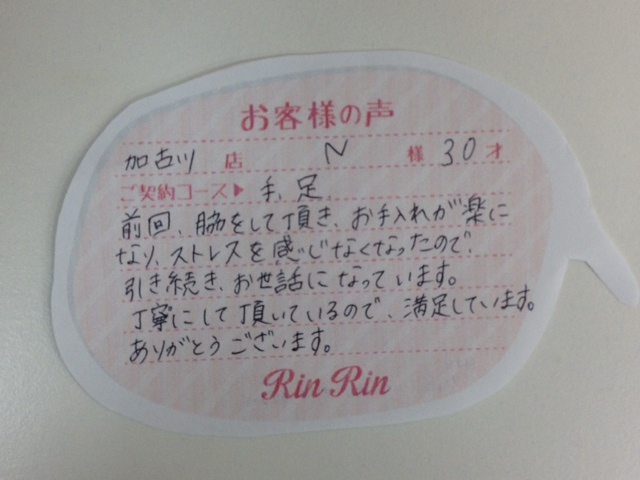 お客様の声
加古川 店 N 様 30才
ご契約コース▶ 手、足
前回、脇をして頂き、お手入れが楽に
なり、ストレスを感じなくなったので、
引き続き、お世話になっています。
丁寧にして頂いているので、満足しています。
ありがとうございます。
Rin Rin